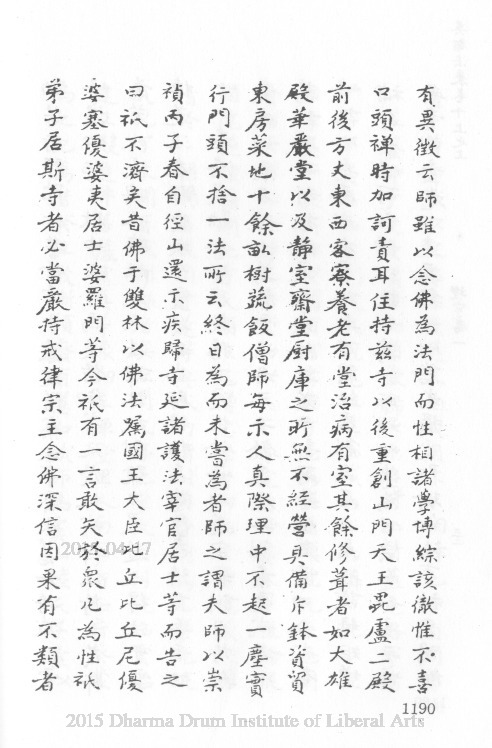 有異徵云師雖以念佛為法門而性相諸學博綜該徹惟不喜
口頭禪時加訶責耳住持兹寺以後重創山門天王毘盧二殿
前後方丈東西客寮養老有堂治病有室其餘修葺者如大雄
殿華嚴堂以及靜室齋堂厨庫之所無不經營具備斥鉢資貿
東房菜地十餘畝樹蔬飯僧師每示人真際理中不起一塵實
行門頭不捨一法所云終日為而未嘗為者師之謂夫師以崇
禎丙子春自徑山還示疾歸寺延諸護法宰官居士等而告之
曰祇不濟矣昔佛于雙林以佛法屬國王大臣比丘比丘尼優
婆塞優婆夷居士婆羅門等今祇有一言敢矢於衆凡為性祇
弟子居斯寺者必當嚴持戒律宗主念佛深信因果有不類者
1190
2015-04-17
2015 Dharma Drum Institute of Liberal Arts